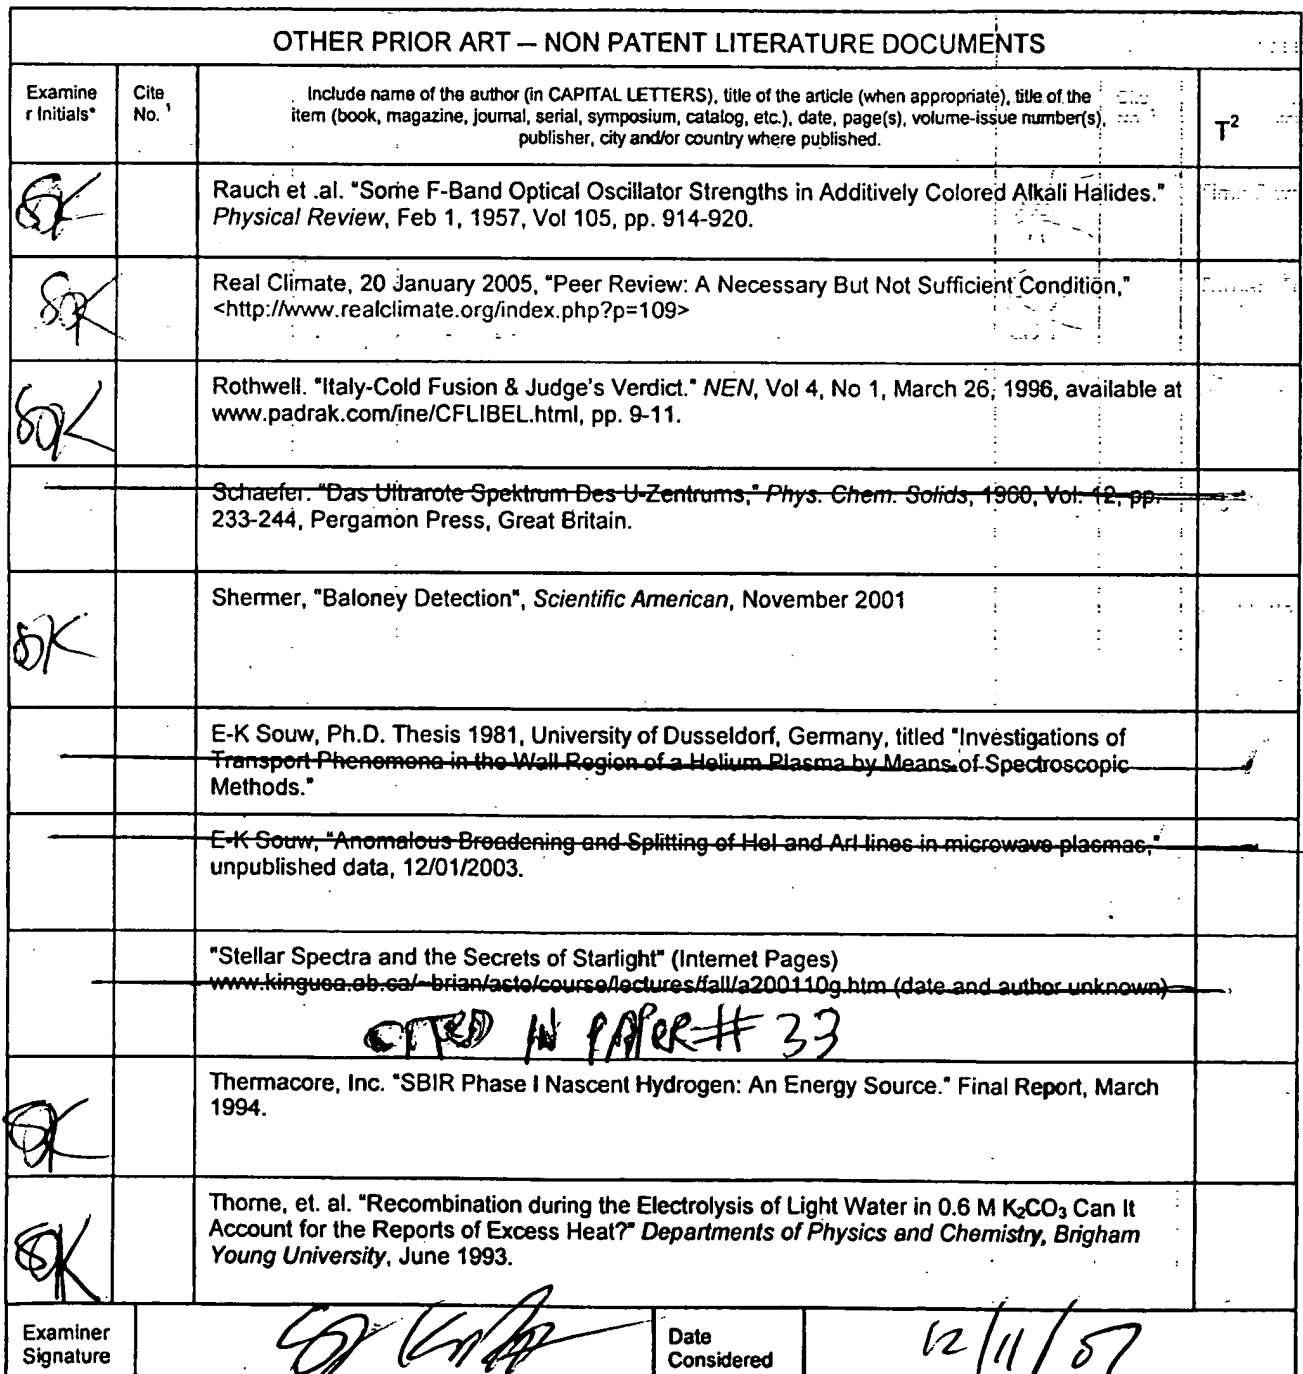 OTHER PRIOR ART – NON PATENT LITERATURE DOCUMENTS
Examine
r Initials*
Cite
No. 1
Include name of the author (in CAPITAL LETTERS), title of the article (when appropriate), title of the
item (book, magazine, journal, serial, symposium, catalog, etc.), date, page(s), volume-issue number(s),
publisher, city and/or country where published.
T2
Rauch et .al. "Some F-Band Optical Oscillator Strengths in Additively Colored Alkali Halides."
Physical Review, Feb 1, 1957, Vol 105, pp. 914-920.
Real Climate, 20 January 2005, "Peer Review: A Necessary But Not Sufficient Condition,"
<http://www.realclimate.org/index.php?p=109>
Rothwell. "Italy-Cold Fusion & Judge's Verdict." NEN, Vol 4, No 1, March 26, 1996, available at
www.padrak.com/ine/CFLIBEL.html, pp. 9-11.
Schaefer. "Das Ultrarote Spektrum Des U-Zentrums," Phys. Chem. Solids, 1960, Vol. 12, pp.
233-244, Pergamon Press, Great Britain.
Shermer, "Baloney Detection", Scientific American, November 2001
E-K Souw, Ph.D. Thesis 1981, University of Dusseldorf, Germany, titled "Investigations of
Transport Phenomena in the Wall Region of a Helium Plasma by Means of Spectroscopic
Methods."
E-K Souw, "Anomalous Broadening and Splitting of HeI and ArI lines in microwave plasmas,"
unpublished data, 12/01/2003.
"Stellar Spectra and the Secrets of Starlight" (Internet Pages)
www.kingusa.ab.ca/~brian/asto/course/lectures/fall/a200110g.htm (date and author unknown)
CITED IN PAPER # 33
Thermacore, Inc. "SBIR Phase I Nascent Hydrogen: An Energy Source." Final Report, March
1994.
Thorne, et. al. "Recombination during the Electrolysis of Light Water in 0.6 M K2CO3 Can It
Account for the Reports of Excess Heat?" Departments of Physics and Chemistry, Brigham
Young University, June 1993.
Examiner
Signature
Date
Considered
12/11/07